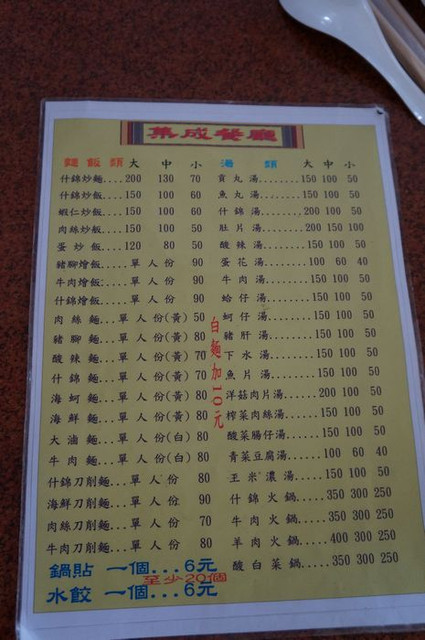 集成餐廳
麵飯類 大 中 小
什錦炒麵....200 130 70
什錦炒飯....150 100 60
蝦仁炒飯....150 100 60
肉絲炒飯....150 100 50
蛋炒飯....120 80 50
豬腳燴飯....單人份 90
牛肉燴飯....單人份 90
什錦燴飯....單人份 90
肉絲麵...單人份(黃) 50
豬腳麵...單人份(黃) 80
酸辣麵...單人份(黃) 70
什錦麵...單人份(黃) 70
海蚵麵...單人份(黃) 80
海鮮麵...單人份(黃) 80
大滷麵...單人份(白) 80
牛肉麵...單人份(白) 80
什錦刀削麵...單人份 80
海鮮刀削麵...單人份 90
肉絲刀削麵...單人份 70
牛肉刀削麵...單人份 80
白麵加10元
湯類 大 中 小
貢丸湯........150 100 50
魚丸湯........150 100 50
什錦湯........200 100 50
肚片湯........200 150 100
酸辣湯........150 100 50
蛋花湯........100 60 40
牛肉湯........150 100 50
蛤仔湯........150 100 50
蚵仔湯........150 100 50
豬肝湯........150 100 50
下水湯........150 100 50
魚片湯........150 100 50
洋菇肉片湯......200 100 50
榨菜肉絲湯......150 100 50
酸菜腸仔湯......150 100 50
青菜豆腐湯......100 60 40
玉米濃湯......150 100 50
什錦火鍋.....350 300 250
牛肉火鍋.....350 300 250
羊肉火鍋.....400 300 250
酸白菜鍋.....350 300 250
鍋貼 一個...6元
至少20個
水餃 一個...6元